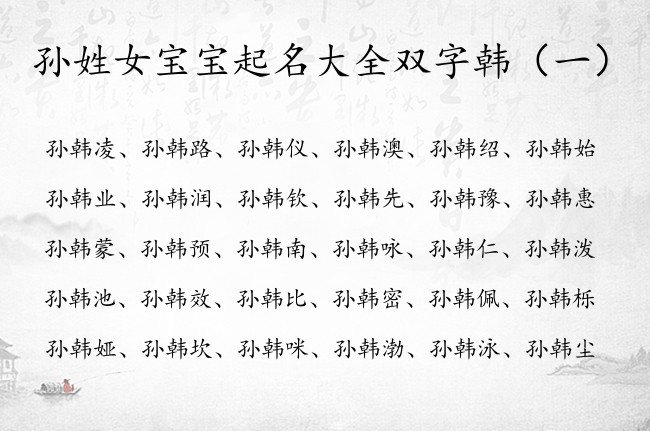 孙姓女宝宝起名大全双字韩（一）
孙韩凌、孙韩路、孙韩仪、孙韩澳、孙韩绍、孙韩始
孙韩业、孙韩润、孙韩钦、孙韩先、孙韩豫、孙韩惠
孙韩蒙、孙韩预、孙韩南、孙韩咏、孙韩仁、孙韩泼
孙韩池、孙韩效、孙韩比、孙韩密、孙韩佩、孙韩栎
孙韩娅、孙韩坎、孙韩咪、孙韩渤、孙韩泳、孙韩尘